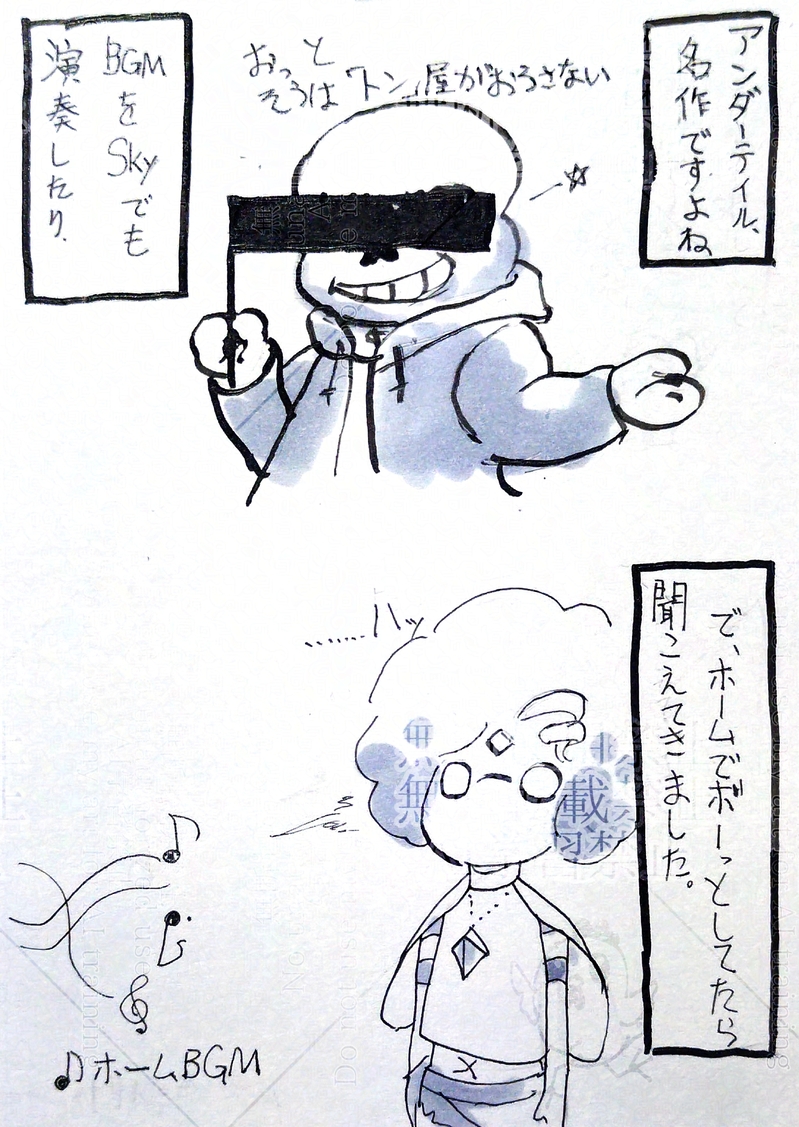 アンダーテイル、
名作ですよね
おっと
そうは 問屋がおろさない
BGMを Skyでも
演奏したり、
で、ホームでボーっとしてたら
聞こえてきました。
……ハッ
♪ホームBGM